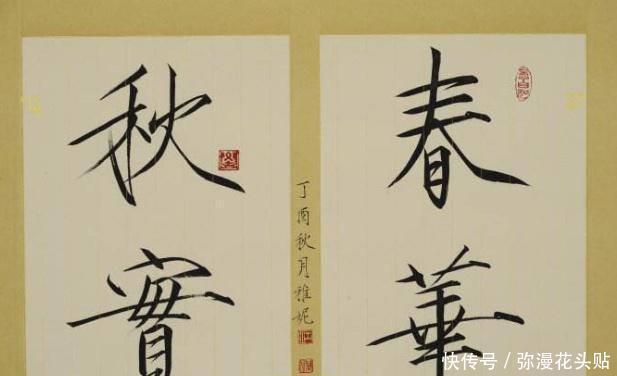 春華
秋實
丁酉秋月雅妮
快传号/弥漫花头贴